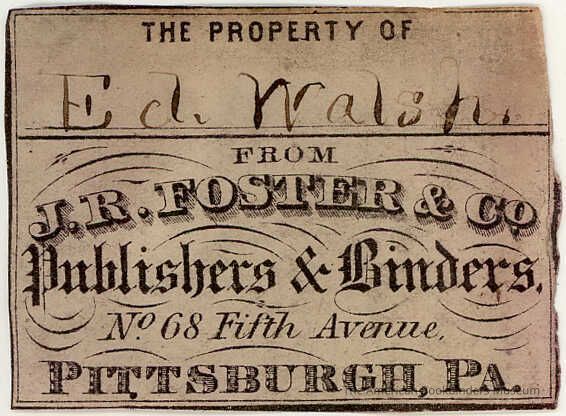 THE PROPERTY OF
Ed. Walsh.
FROM
J. R. FOSTER & Co
Publishers & Binders,
No. 68 Fifth Avenue,
PITTSBURGH, PA.
The American Bookbinders Museum